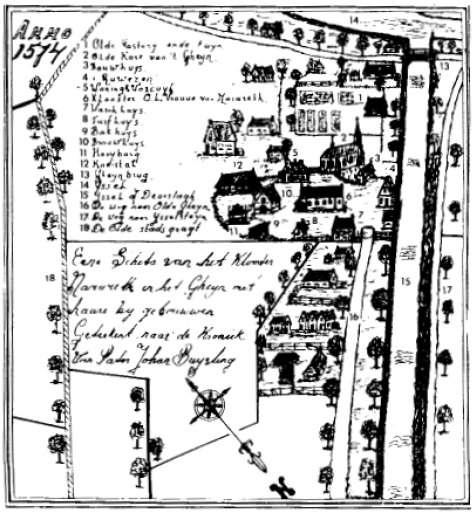 ANNO
1574
1 Olde Pastory ende Tuyn
2 Olde Kerk van 't Gheyn
3 Bouwhuys
4 Bawezen
5 Woninghe
6 Klooster O.L. Vrouwe van Nazareth
7 Waschhuys
8 Turfhuys
9 Bakhuys
10 Brouwhuys
11 Hooyberg
12 Koestal
13 Gheynbrug
14 IJssel
15 IJssel of Doorslagh
16 De weg naer Olde Gheyn
17 De weg naer IJsselsteyn
18 De Olde stadsgragt
Eene Schets van het Klooster
Nazareth in het Gheyn met
haare by gebouwen
Geteekent naar de Kroniek
Van Pater Johan Buysting
14
13
1
2
3
4
5
12
10
6
7
11
9
8
18
16
15
17